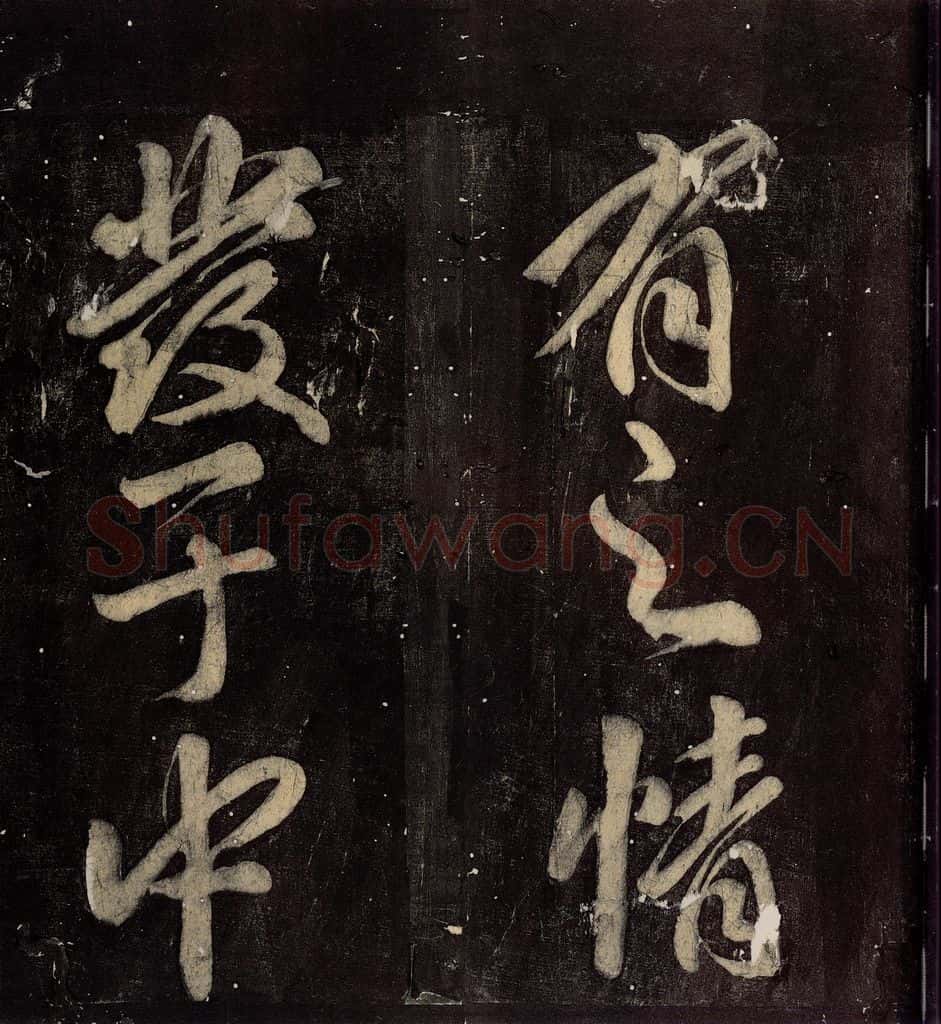 有之情
發于中
Shufawang.CN